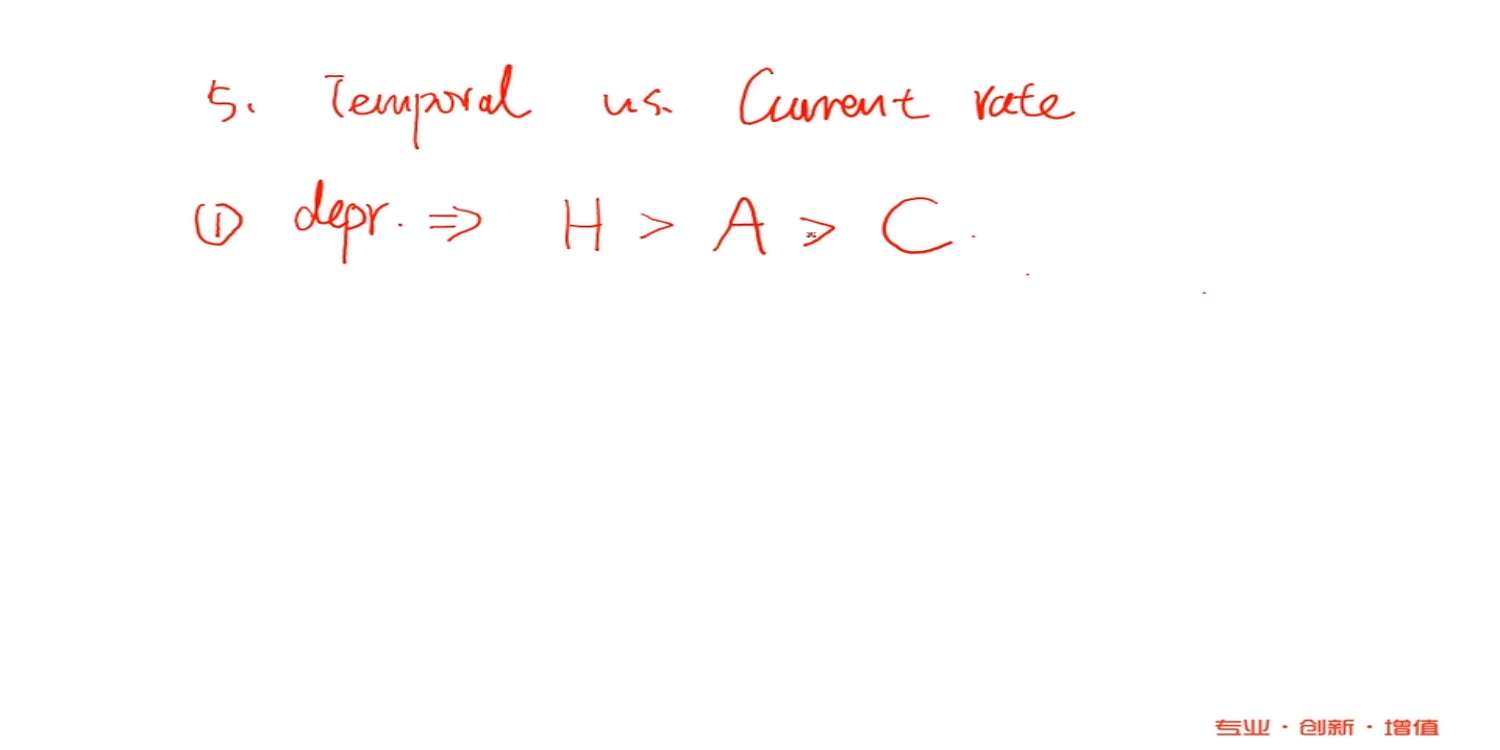 5. Temporal vs. Current rate
① depr. ⇒ H > A > C.
专业·创新·增值